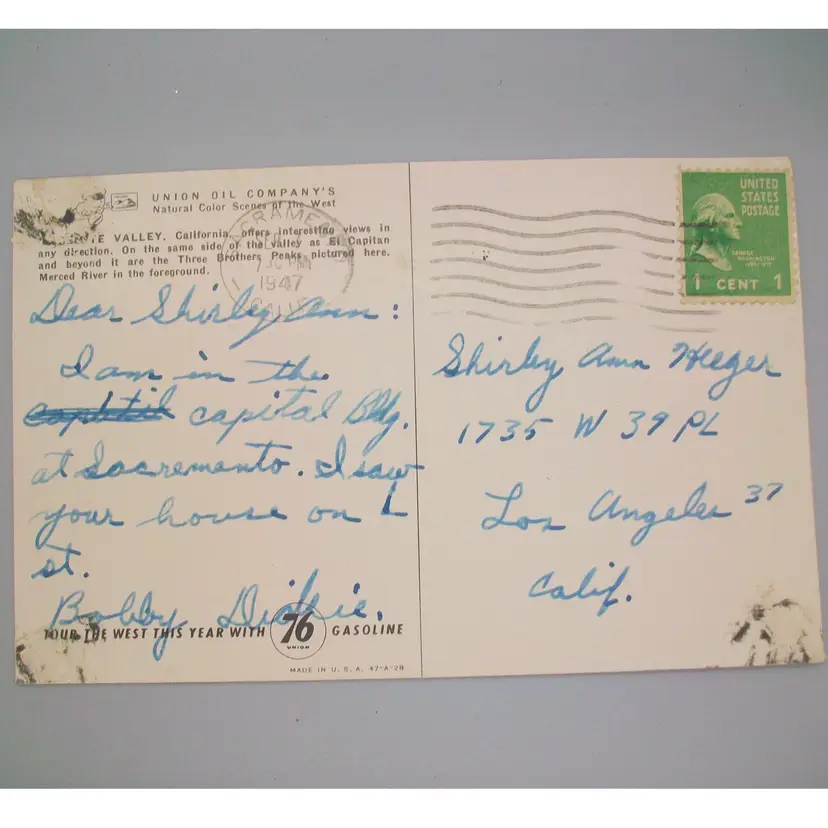 UNION OIL COMPANY'S
Natural Color Scenes of the West
VALLEY, California, offers interesting views in
any direction. On the same side of the valley as El Capitan
and beyond it are the Three Brothers Peaks pictured here.
Merced River in the foreground.
Dear Shirley Ann:
I am in the
capital Bldg.
at Sacremento. I saw
your house on L
st.
Bobby Dickie.
TOUR THE WEST THIS YEAR WITH 76 GASOLINE
UNION
MADE IN U. S. A. 47-A-28
1947
UNITED
STATES
POSTAGE
GEORGE
WASHINGTON
1 CENT 1
Shirley Ann Heeger
1735 W 39 PL
Los Angeles 37
Calif.